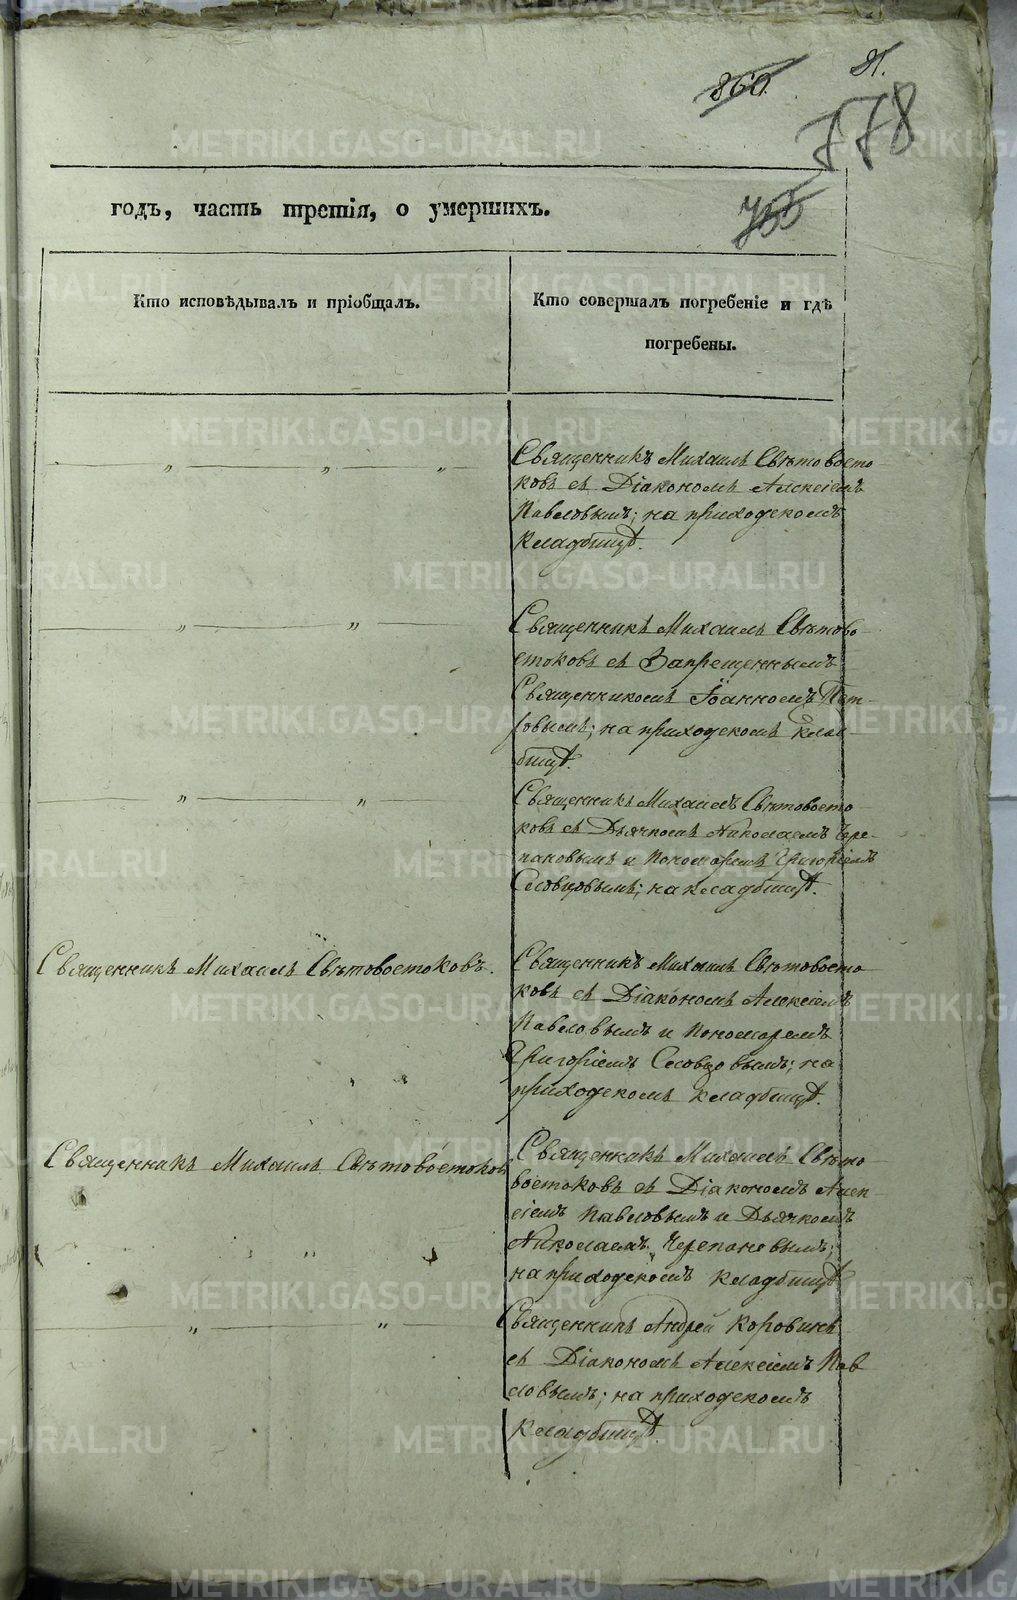 860.
778
755
годъ, часть третія, о умершихъ.
Кто исповѣдывалъ и пріобщалъ.
Кто совершалъ погребеніе и гдѣ
погребены.
Священникъ Михаилъ Свѣтовосто-
ковъ съ Діакономъ Алексіемъ
Павловымъ; на приходскомъ
кладбищѣ.
Священникъ Михаилъ Свѣтово-
стоковъ съ Запрещеннымъ
Священникомъ Іоанномъ Пет-
ровымъ; на приходскомъ клад-
бищѣ.
Священникъ Михаилъ Свѣтовосто-
ковъ съ Дьячкомъ Николаемъ Чере-
пановымъ и Пономаремъ Григоріемъ
Словцовымъ; на кладбищѣ.
Священникъ Михаилъ Свѣтовостоковъ.
Священникъ Михаилъ Свѣтовосто-
ковъ съ Діакономъ Алексіемъ
Павловымъ и Пономаремъ
Григоріемъ Словцовымъ; на
приходскомъ кладбищѣ.
Священникъ Михаилъ Свѣтовостоковъ
Священникъ Михаилъ Свѣто-
востоковъ съ Діакономъ Алек-
сіемъ Павловымъ и Дьячкомъ
Николаемъ Черепановымъ;
на приходскомъ кладбищѣ
Священникъ Андрей Коровинъ
съ Діакономъ Алексіемъ Пав
ловымъ; на приходскомъ
кладбищѣ.
METRIKI.GASO-URAL.RU